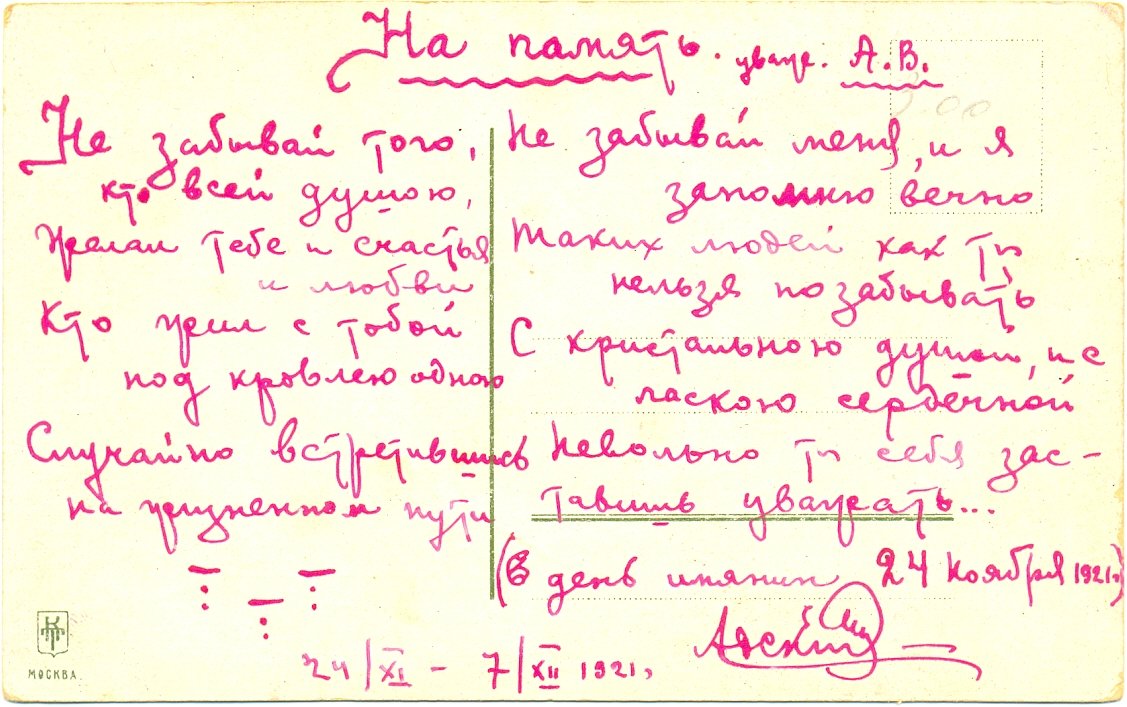 На память. уваж. А.В.
Не забывай того,
кто всей душою,
Желал тебе и счастья
и любви
Кто жил с тобой
под кровлею одною
Случайно встретившись
на жизненном пути
Не забывай меня, и я
запомню вечно
Таких людей как ты
нельзя позабывать
С кристальною душой, и с
ласкою сердечной
Невольно ты себя зас-
тавишь уважать...
(В день имянин 24 Ноября 1921г)
24/XI - 7/XII 1921г
МОСКВА.